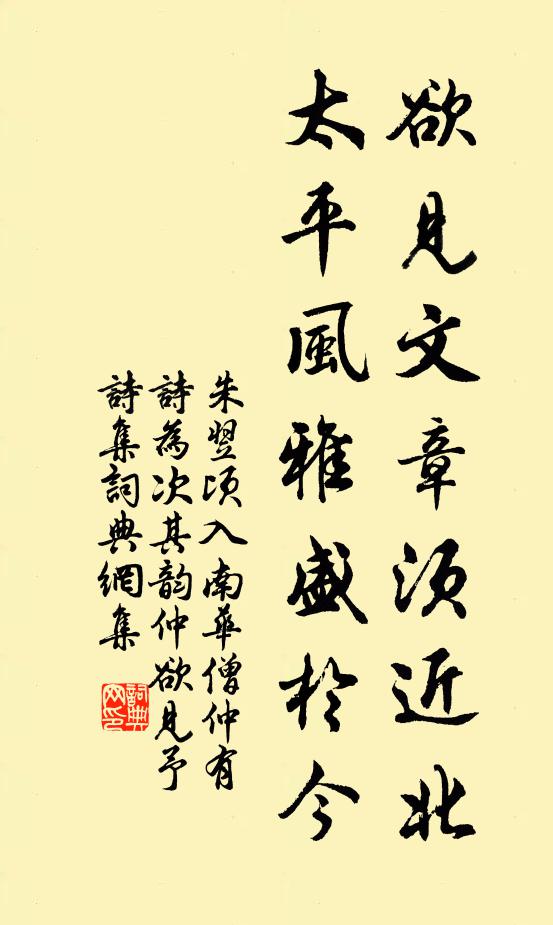 欲見文章須近北
太平風雅盛於今
朱翌頃入南華僧仲有
詩為次其韵仲欲見予
詩集詞典網集
詞典网印